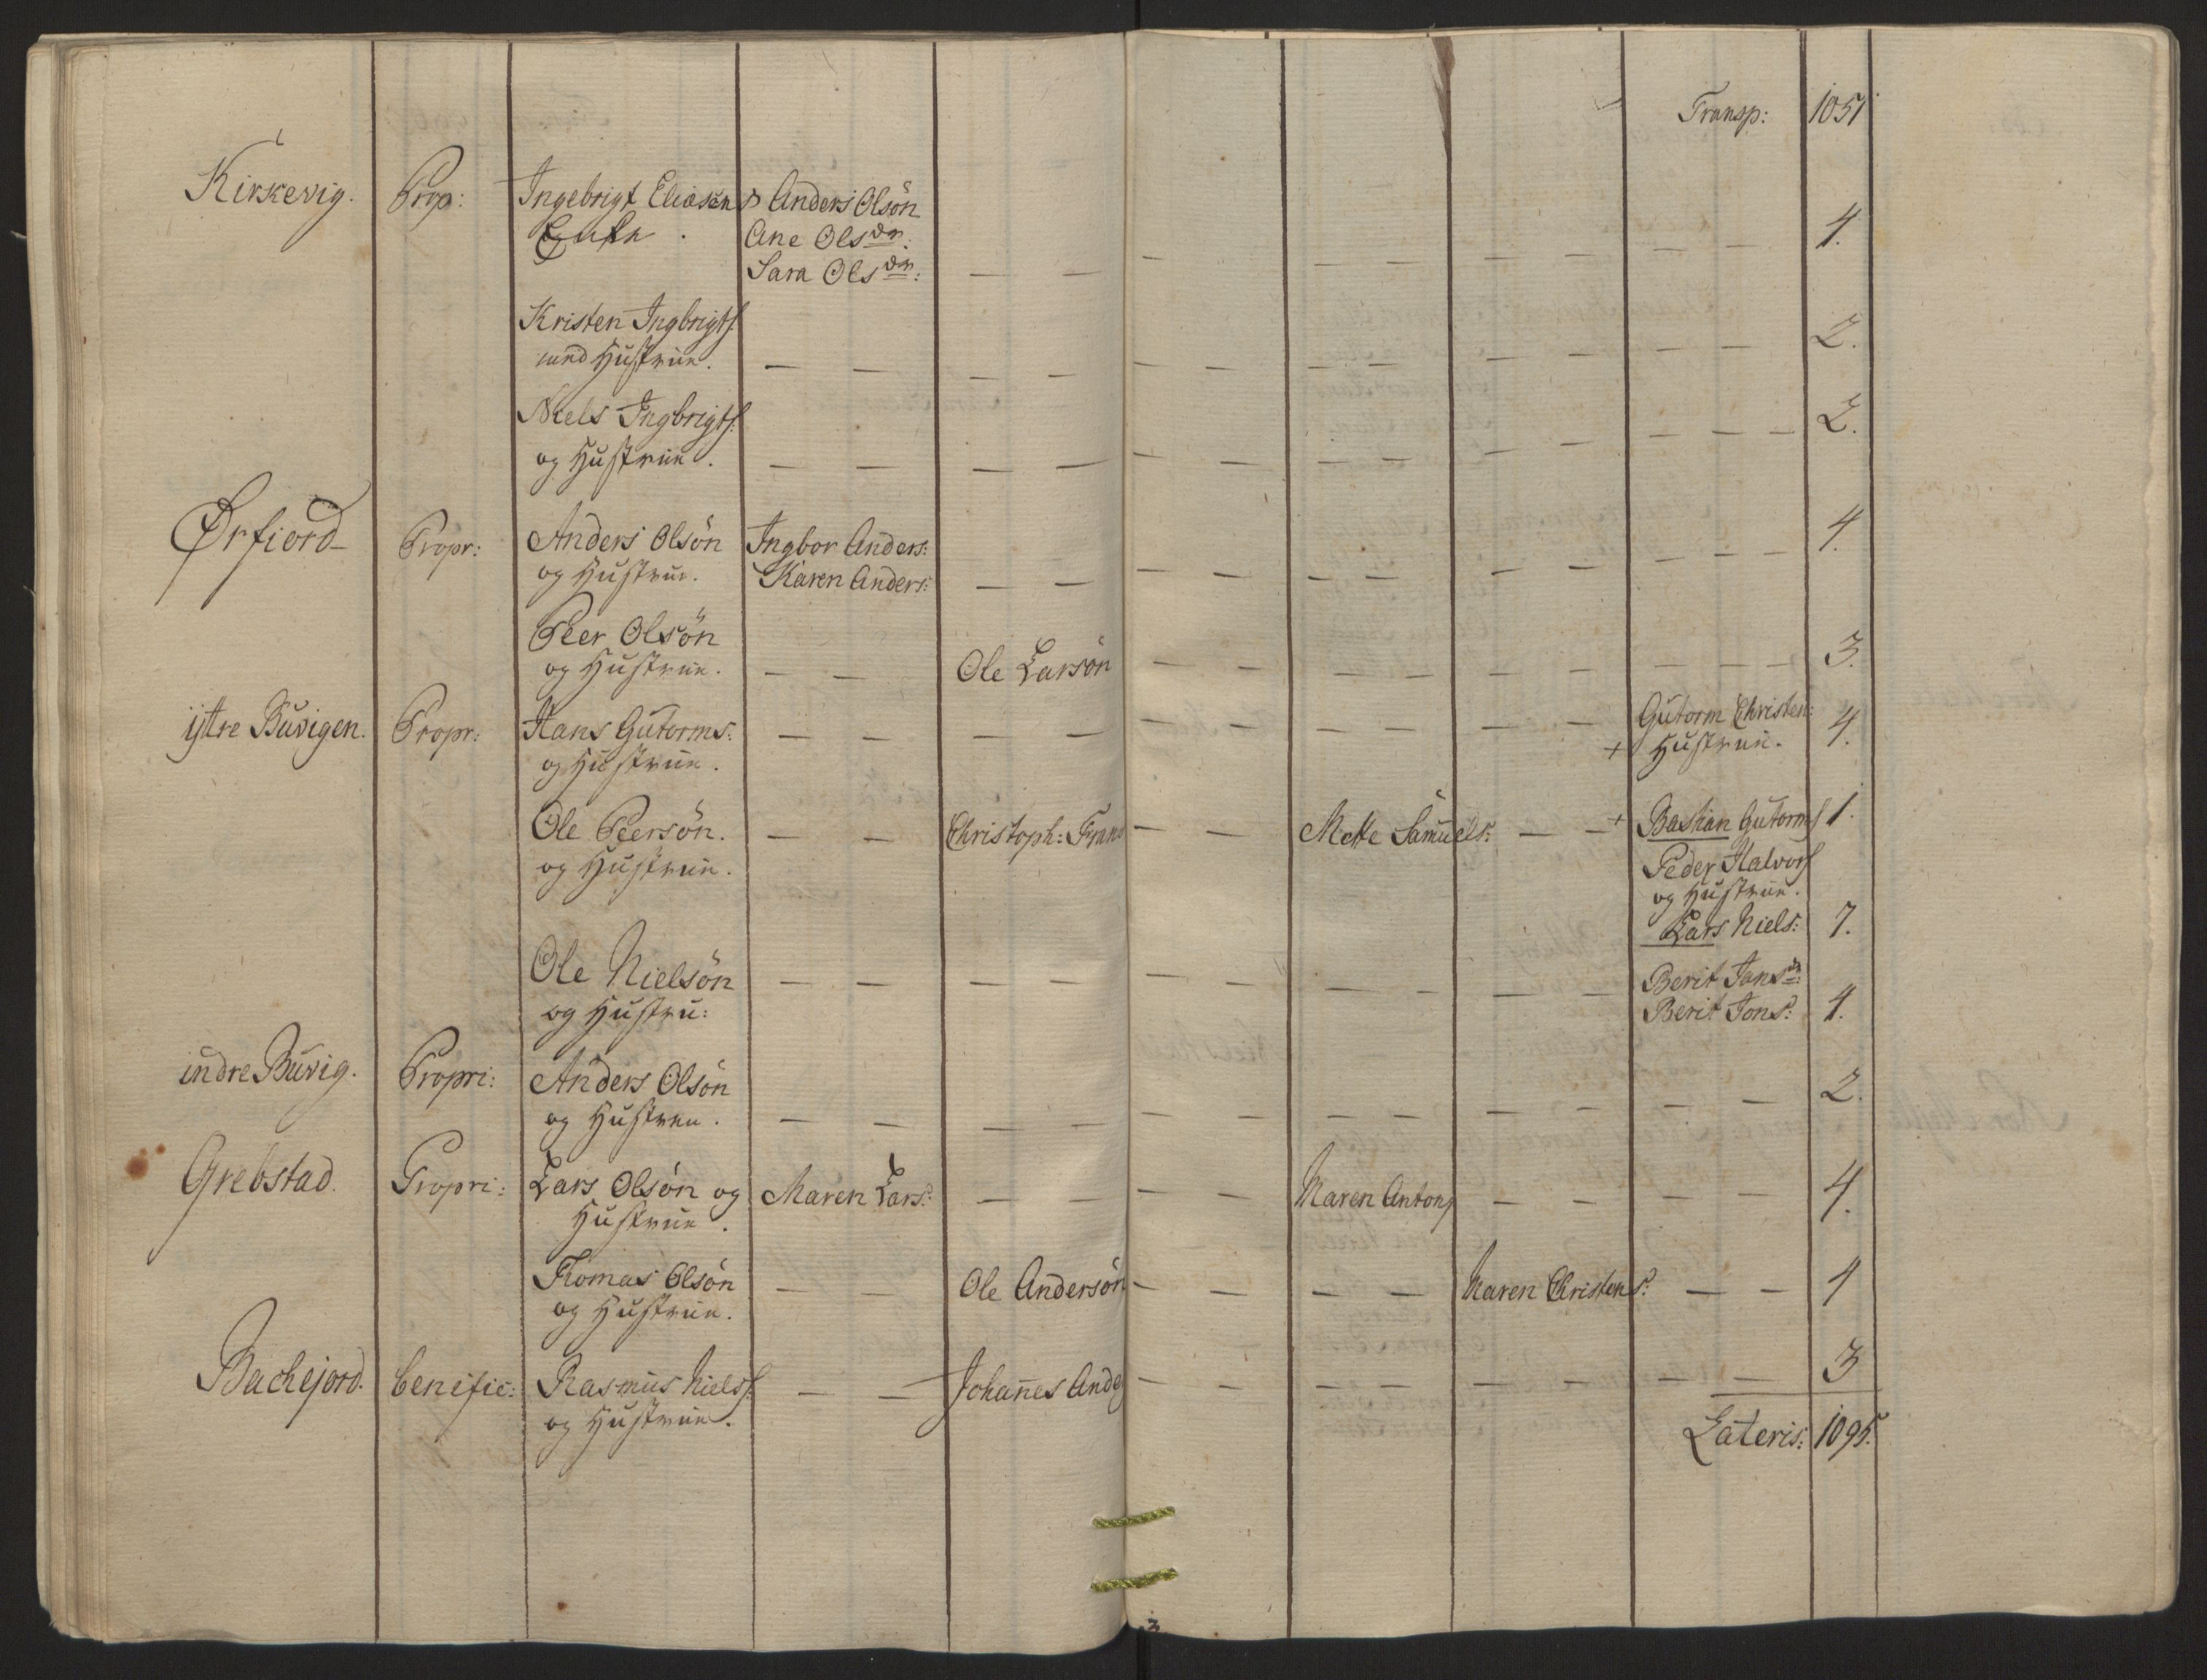 Transp: 1051
Kirkevig. Prop: Ingebrigt Eliasens Anders Olsön
Enke. Ane Olsdr: 4.
Sara Olsdr: — — — — — — — — —
Kristen Ingbrigts.
med Hustrue. — — — — — — — — — — — — 2.
Niels Ingbrigts:
og Hustrue. — — — — — — — — — — — — — 2.
Ørfiord Propr: Anders Olsön Ingbor Anders: 4.
og Hustrue. Karen Anders: — — — — — — — — — — —
Peer Olsön
og Hustrue. — — Ole Larsön — — — — — — — — — 3.
ÿttre Buvigen. Propr: Hans Gutorms: — — — — — — — — — — Gutorm Christen: 4.
og Hustrue. + Hustrue.
Ole Peersön. — — Christoph: Frans — — Mette Samuels: — — + Bastian Gutorms 1.
og Hustrue. Peder Halvors
og Hustrue.
Lars Niels: 7.
Ole Nielsön — — — — — — — — — — Berit Jansdr:
og Hustru: Berit Jons: 4.
indre Buvig. Propri: Anders Olsön 2.
og Hustrue. — — — — — — — — — — — —
Grebstad. Propri: Lars Olsön og Maren Lars: — — — — Maren Antons — — — — 4.
Hustrue.
Tomas Olsön — — Ole Andersön — — — — Maren Christens: — — 4
og Hustrue.
Bachejord. benefic: Rasmus Niels: — — Johannes Anders — — — — — — — — 3
og Hustrue.
Lateris: 1095.